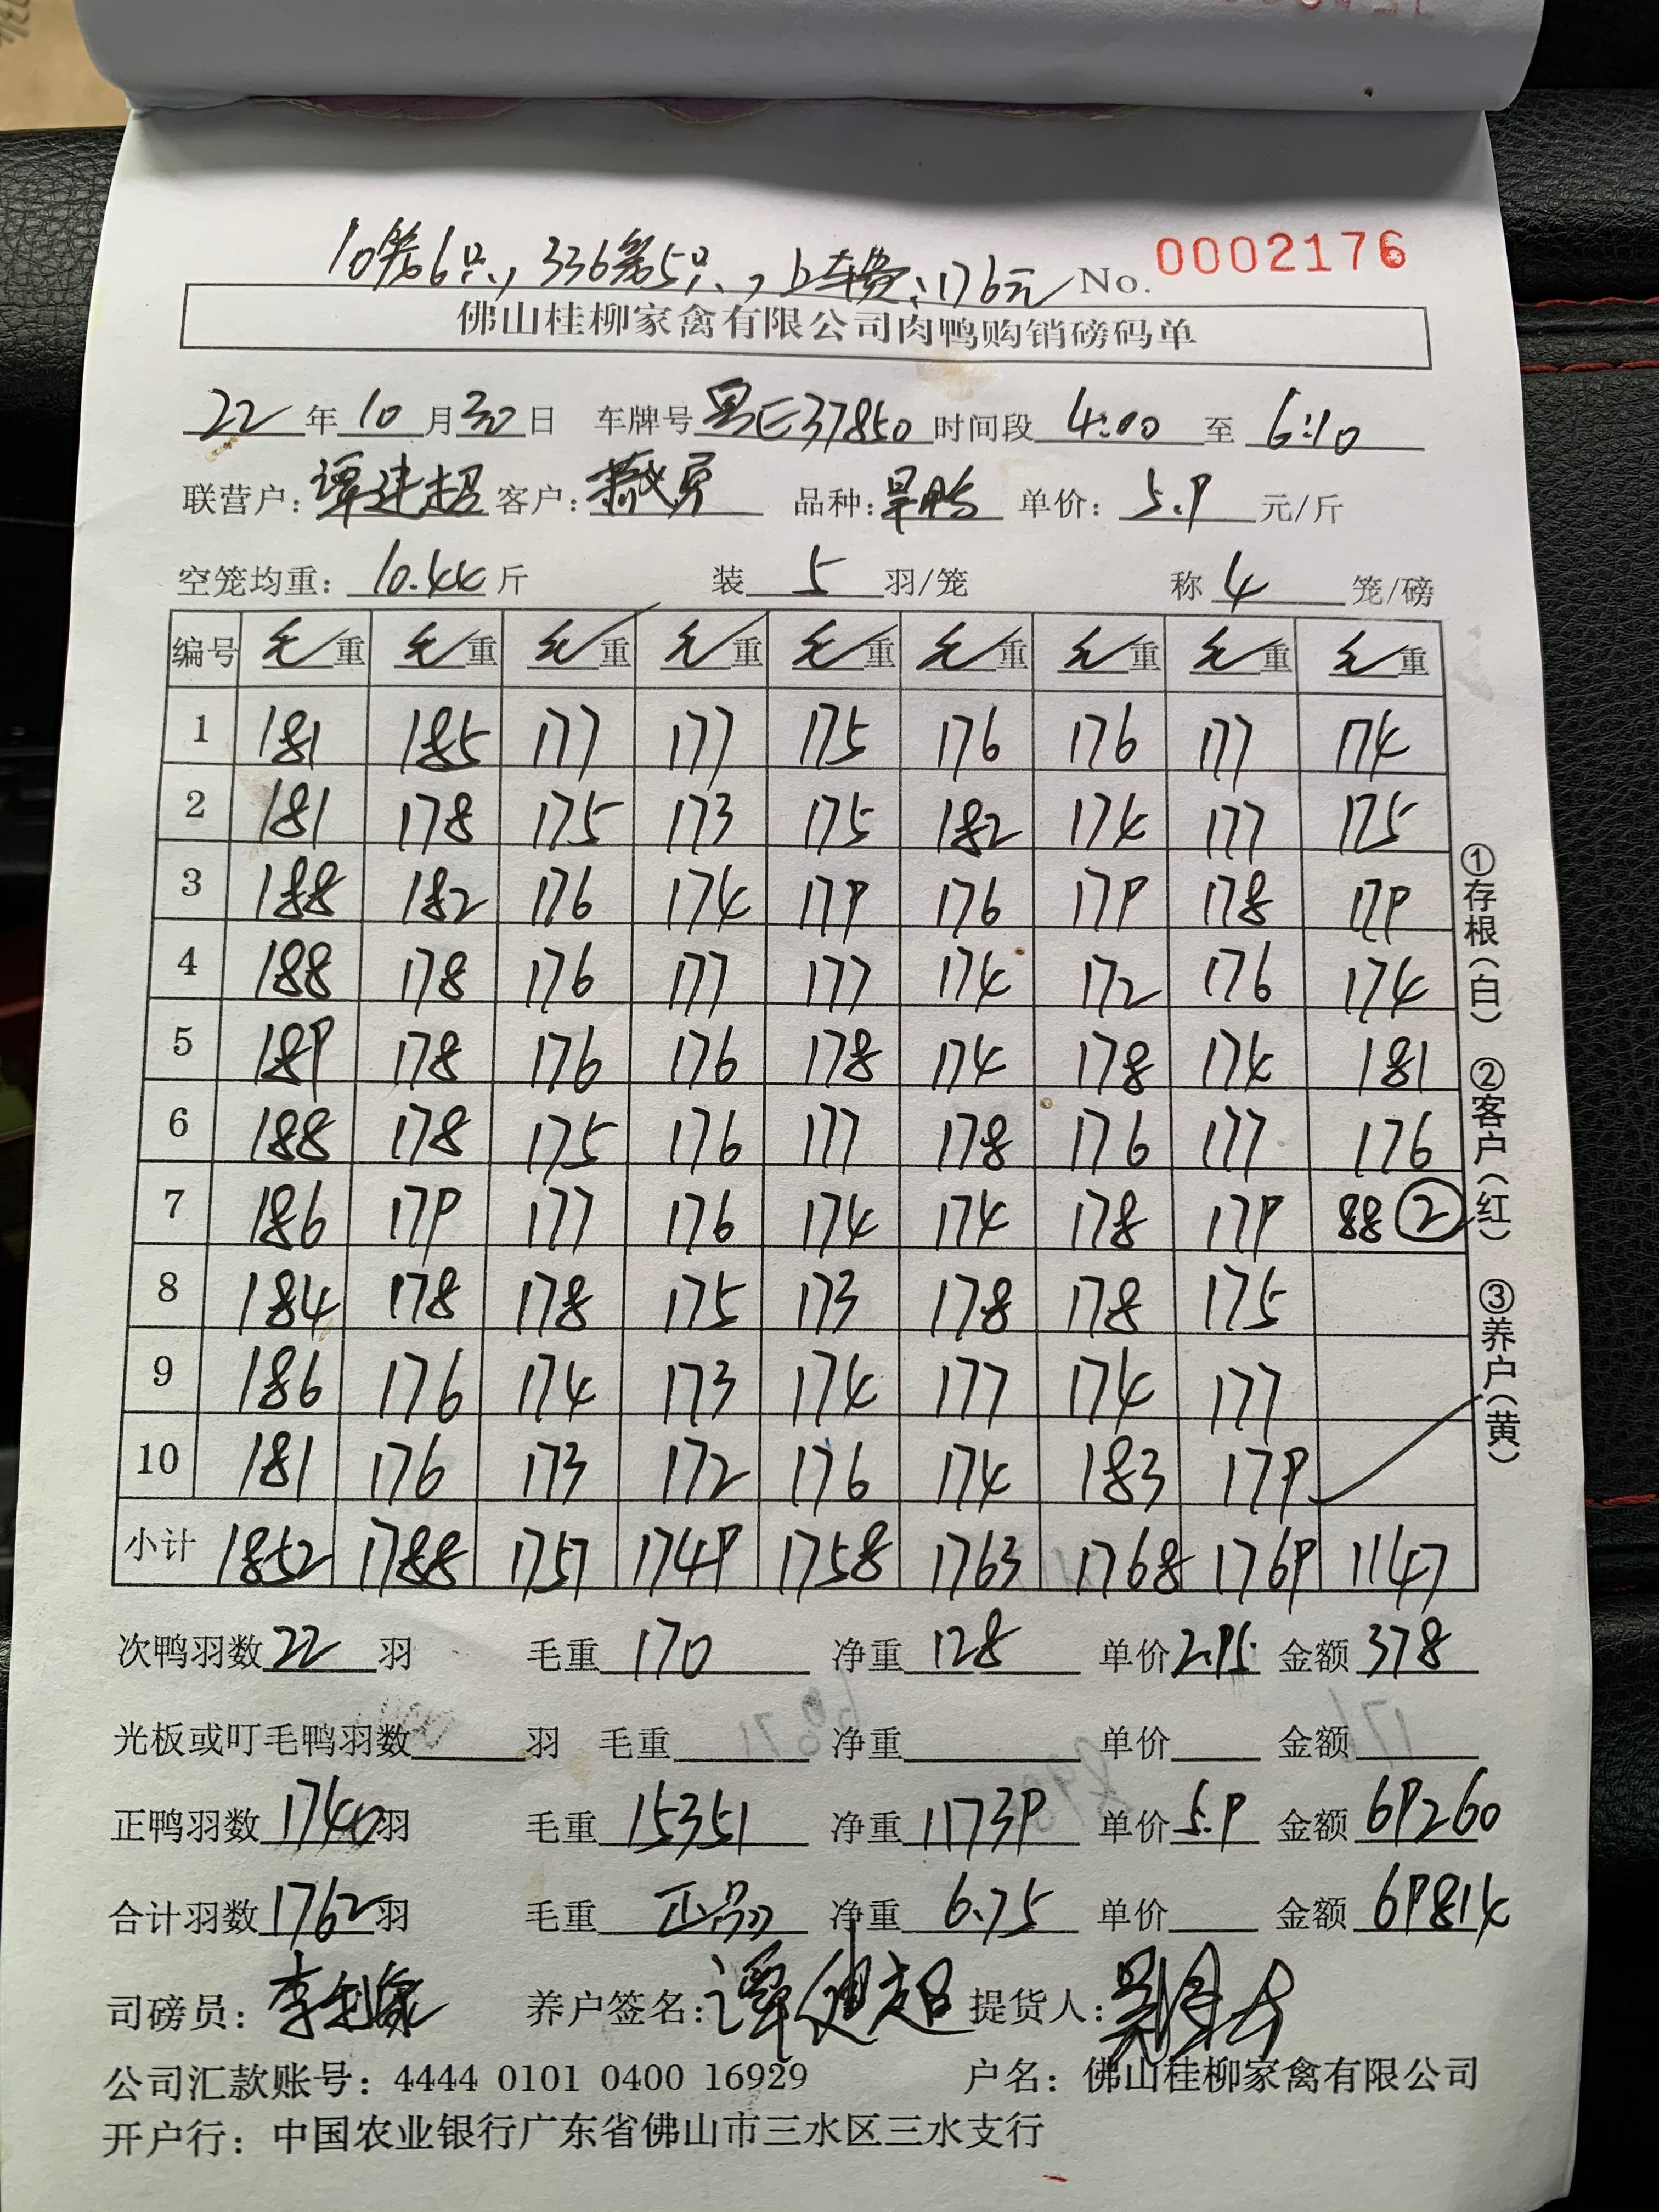 10笼6只, 336笼5只, 上车费:176元 No. 0002176
佛山桂柳家禽有限公司肉鸭购销磅码单
22年10月30日 车牌号粤E37850时间段 4:00 至 6:10
联营户:谭建超 客户: 品种:旱鸭 单价: 5.9 元/斤
空笼均重: 10.44斤 装 5 羽/笼 称 4 笼/磅
编号 毛重 毛重 毛重 毛重 毛重 毛重 毛重 毛重 毛重
1 181 185 177 177 175 176 176 177 174
2 181 178 175 173 175 182 174 177 175
3 188 182 176 174 179 176 179 178 179
4 188 178 176 177 177 174 172 176 174
5 189 178 176 176 178 174 178 174 181
6 188 178 175 176 177 178 176 177 176
7 186 179 177 176 174 174 178 179 88②
8 184 178 178 175 173 178 178 175
9 186 176 174 173 174 177 174 177
10 181 176 173 172 176 174 183 179
小计 1852 1788 1757 1749 1758 1763 1768 1769 1147
次鸭羽数22羽 毛重170 净重128 单价2.95 金额378
光板或叮毛鸭羽数 羽 毛重 净重 单价 金额
正鸭羽数1740羽 毛重15351 净重11739 单价5.9 金额69260
合计羽数1762羽 毛重正品 净重6.75 单价 金额69814
司磅员:李 养户签名:谭建超 提货人:
公司汇款账号:4444 0101 0400 16929 户名:佛山桂柳家禽有限公司
开户行:中国农业银行广东省佛山市三水区三水支行
①存根(白) ②客户(红) ③养户(黄)